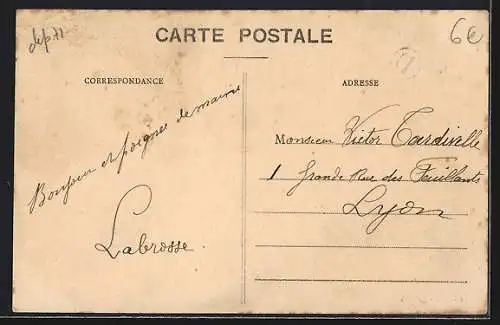 dep 71
6€
CARTE POSTALE
CORRESPONDANCE
ADRESSE
Bonjour et poignes de mains
Labrosse
Monsieur Victor Tardivelle
1 Grande Rue des Feuillants
Lyon